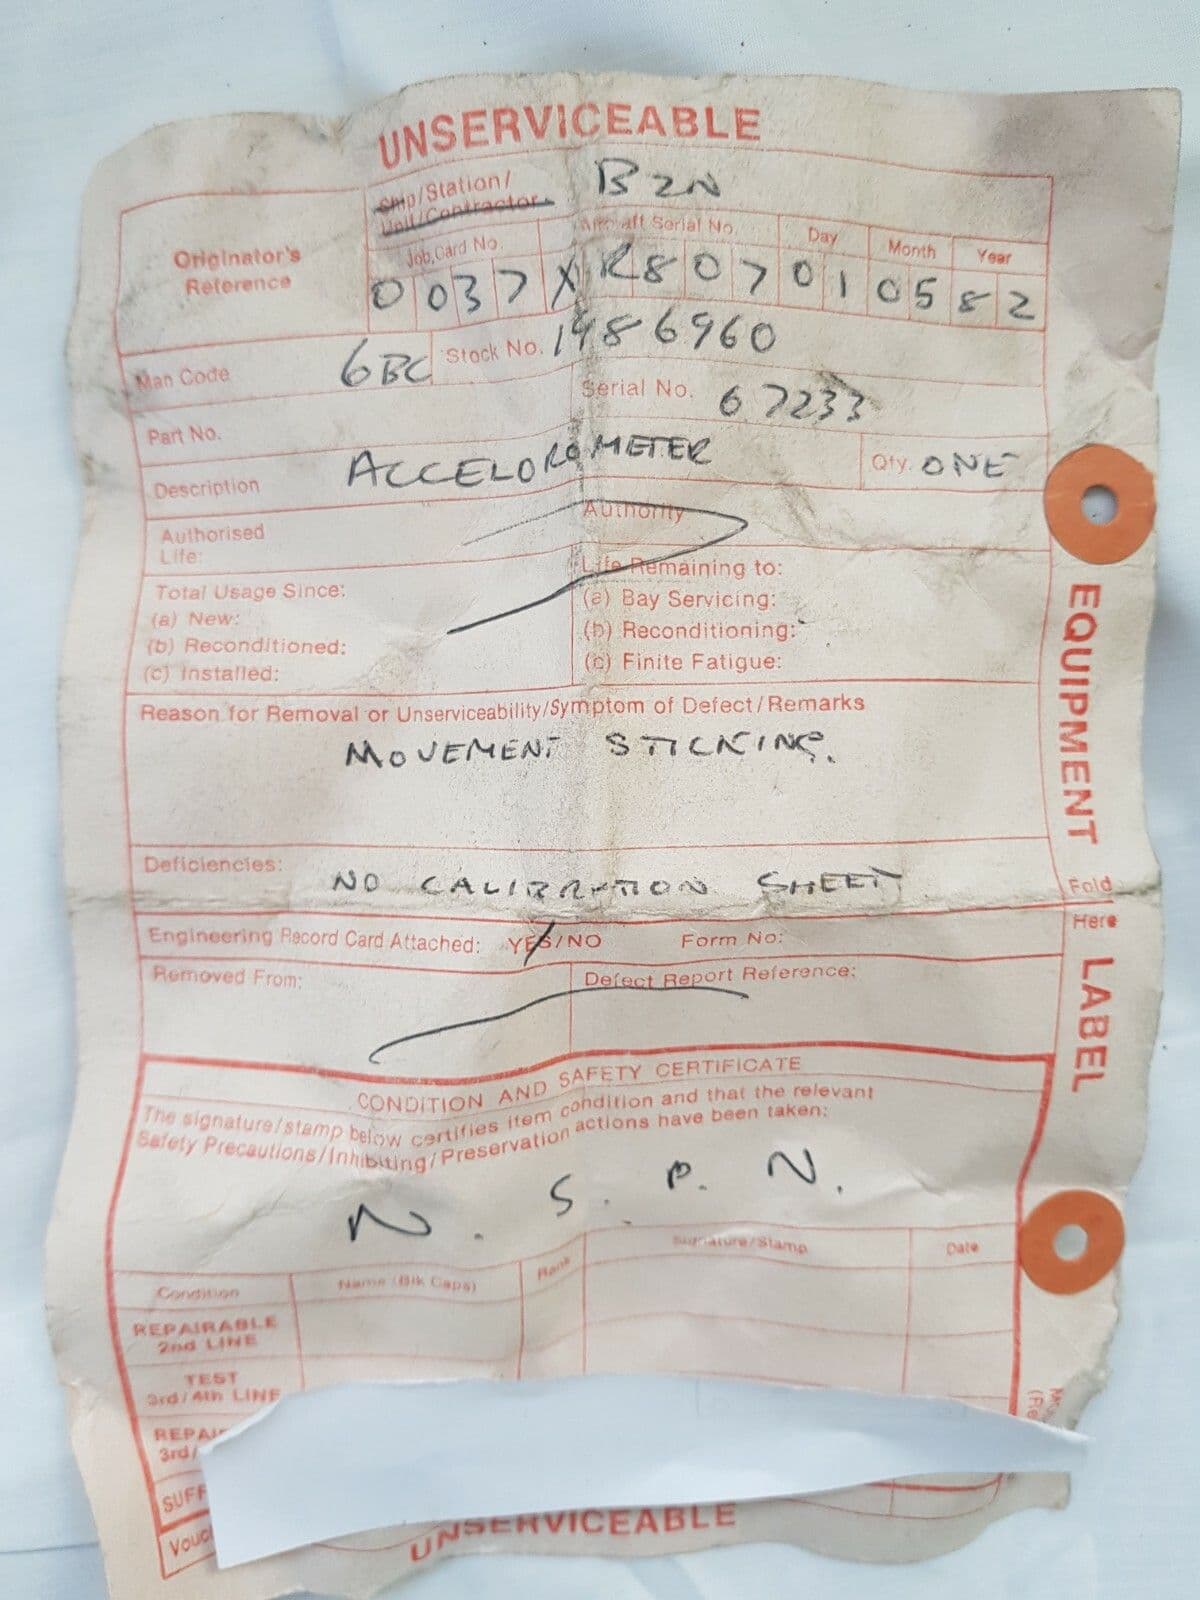 UNSERVICEABLE
Originator's
Reference
Ship/Station/
Unit/Contractor
BZN
Job Card No.
Aircraft Serial No.
Day
Month
Year
0037 XR807 01 05 82
Man Code
6BC
Stock No. 1986960
Part No.
Serial No. 67233
Description
ACCELOROMETER
Qty. ONE
Authorised
Life:
Authority
Total Usage Since:
(a) New:
(b) Reconditioned:
(c) Installed:
Life Remaining to:
(a) Bay Servicing:
(b) Reconditioning:
(c) Finite Fatigue:
Reason for Removal or Unserviceability/Symptom of Defect/Remarks
MOVEMENT STICKING.
Deficiencies:
NO CALIBRATION SHEET
Engineering Record Card Attached: YES/NO Form No:
Removed From:
Defect Report Reference:
CONDITION AND SAFETY CERTIFICATE
The signature/stamp below certifies item condition and that the relevant
Safety Precautions/Inhibiting/Preservation actions have been taken:
N. S. P. N.
Condition
Name (Blk Caps)
Rank
Signature/Stamp
Date
REPAIRABLE
2nd LINE
TEST
3rd/4th LINE
REPAI
3rd/
SUFF
Vouc
UNSERVICEABLE
EQUIPMENT
Fold
Here
LABEL